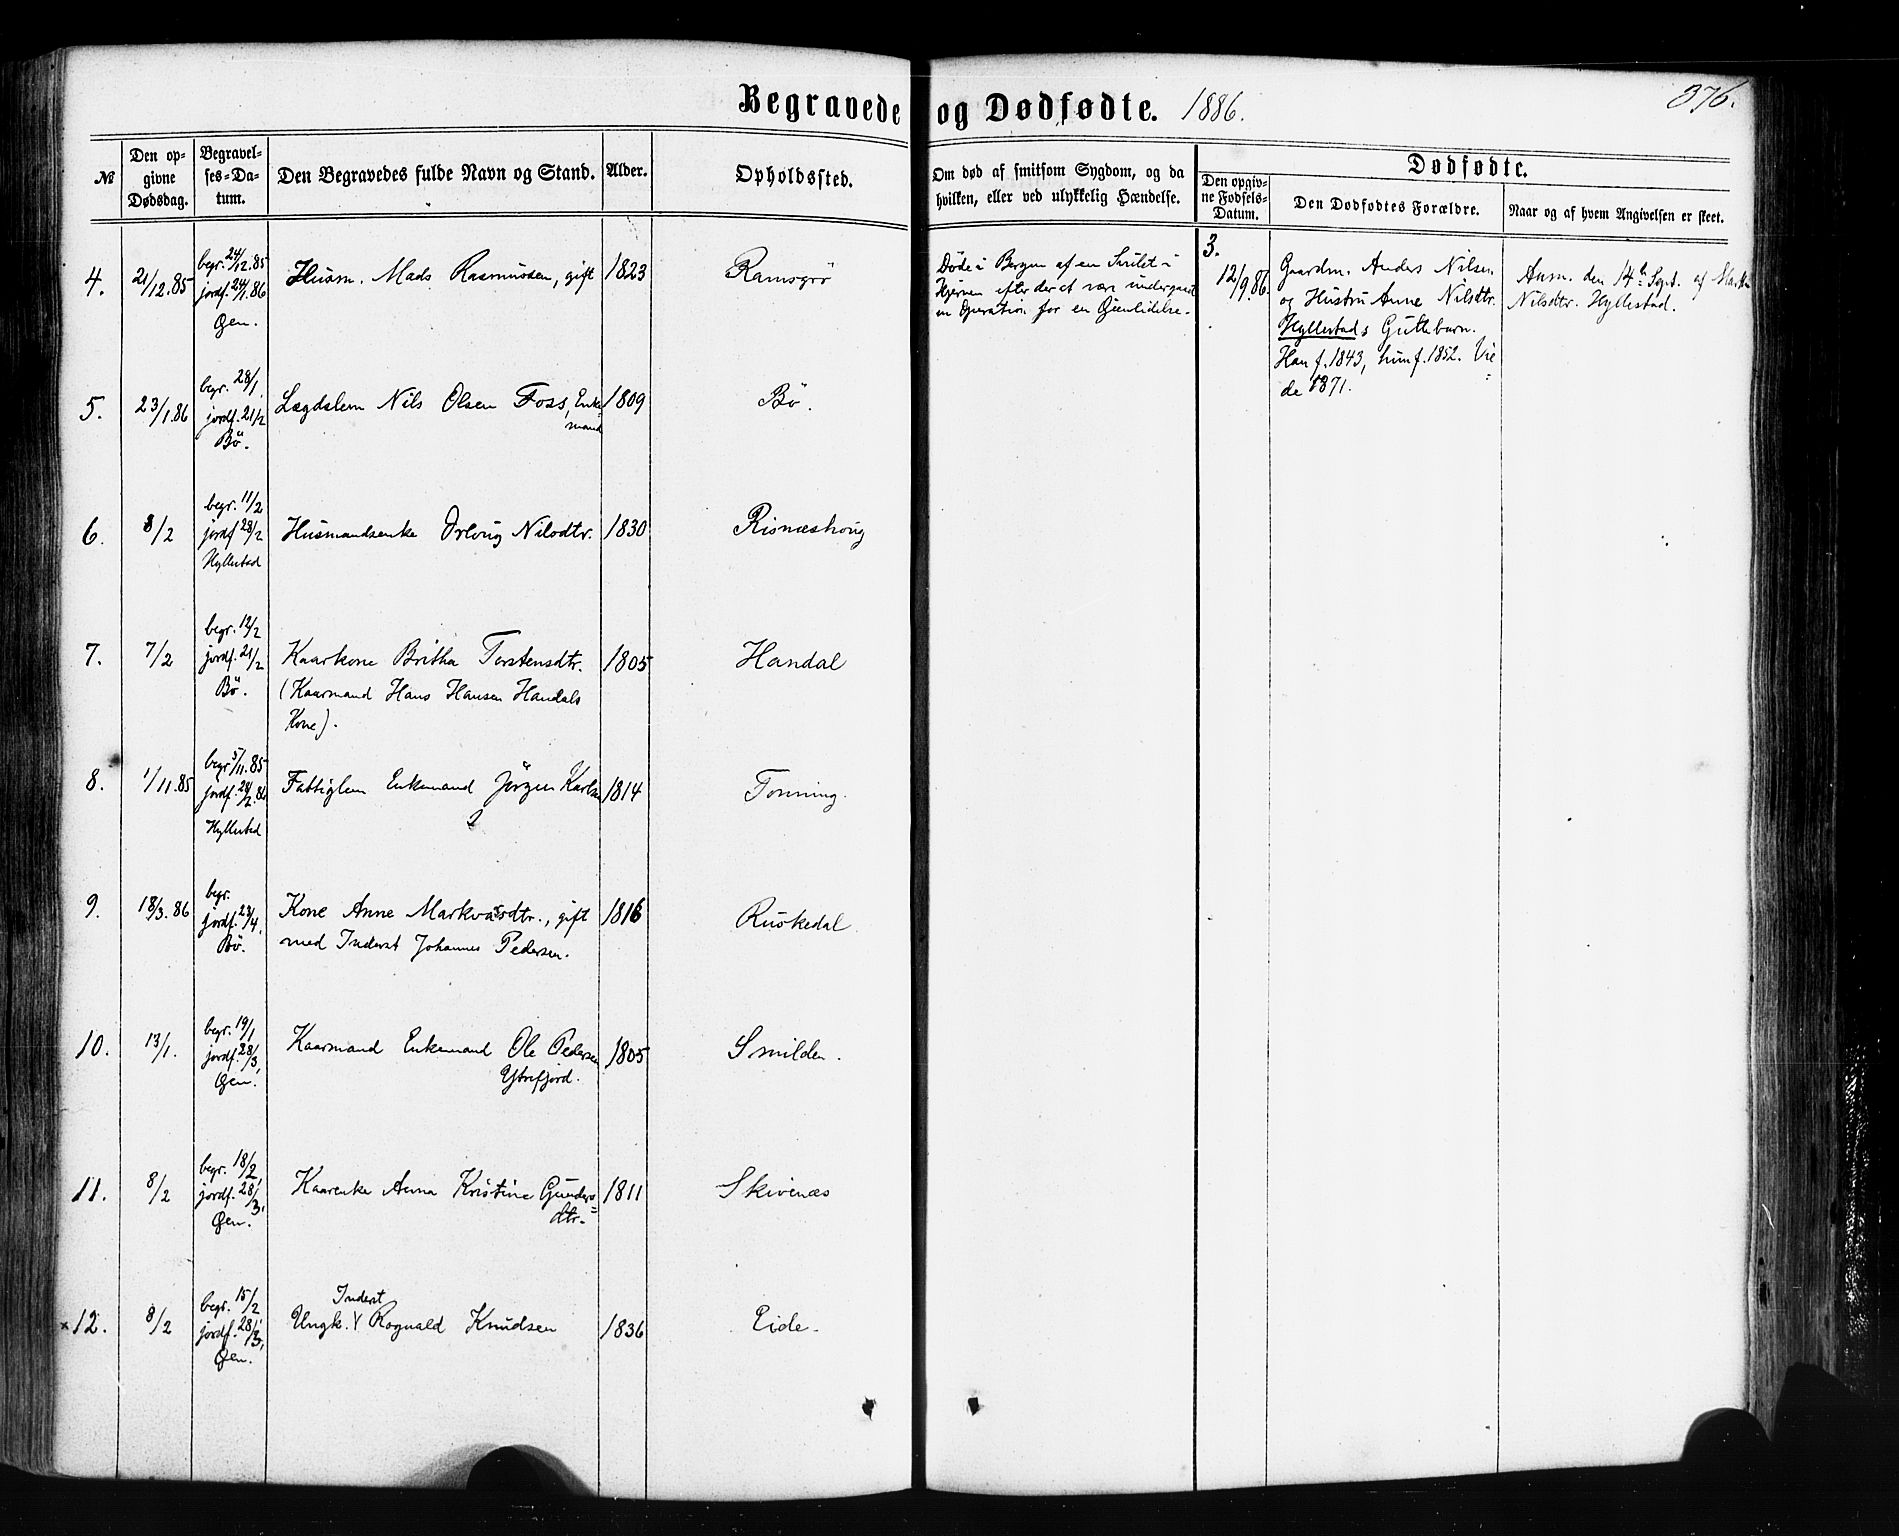 Begravede og Dødfødte. 1886.
376.
№
Den opgivne Dødsdag.
Begravelses-Datum.
Den Begravedes fulde Navn og Stand.
Alder.
Opholdssted.
Om død af smitsom Sygdom, og da hvilken, eller ved ulykkelig Hændelse.
Dødfødte.
Den opgivne Fødsels-Datum.
Den Dødfødtes Forældre.
Naar og af hvem Angivelsen er skeet.
4. 21/12.85 begr. 24/12.85 jordf. 24/1.86 Øen. Husm. Mads Rasmussen, gift 1823 Ramsgrö
Døde i Bergen af en Svulst i
Hjernen efter der at være undergaaet
en Operation for en Øienlidelse.
3. 12/9.86. Gaardm. Anders Nilsen
og Hustru Anne Nilsdtr.
Hyllestads Guttebarn.
Han f. 1843, hun f. 1852. Vie=
de 1871.
Anm. den 14de Sept. af
Nilsdtr. Hyllestad.
5. 23/1.86 begr. 28/1. jordf. 21/2 Bö. Lægdslem Nils Olsen Foss, Enke=
mand 1809 Bö.
6. 3/2 begr. 11/2 jordf 28/2 Hyllestad Husmandsenke Orloug Nilsdtr. 1830 Risnæshoug
7. 7/2 begr. 12/2 jordf. 21/2 Bö. Kaarkone Britha Torstensdtr. 1805 Handal
(Kaarmand Hans Hansen Handals
Kone).
8. 1/11.85 begr 5/11.85 jordf. 28/2.86 Hyllestad Fattiglem Enkemand Jörgen Karlsen 1814 Tonning.
9. 18/3.86 begr. jordf. 23/4. Bö. Kone Anne Markvasdtr., gift 1816 Ruskedal
med Inderst Johannes Pedersen.
10. 13/1. begr. 19/1 jordf. 28/3, Øen. Kaarmand Enkemand Ole Pedersen 1805 Smilden.
Ytrefjord.
11. 8/2 begr. 18/2, jordf. 28/3, Øen. Kaarenke Anna Kristine Gunders=
dtr. 1811 Skivenæs
× 12. 8/2 begr. 15/2 jordf. 28/3, Øen. Inderst
Ungk. Y Rognald Knudsen 1836 Eide.